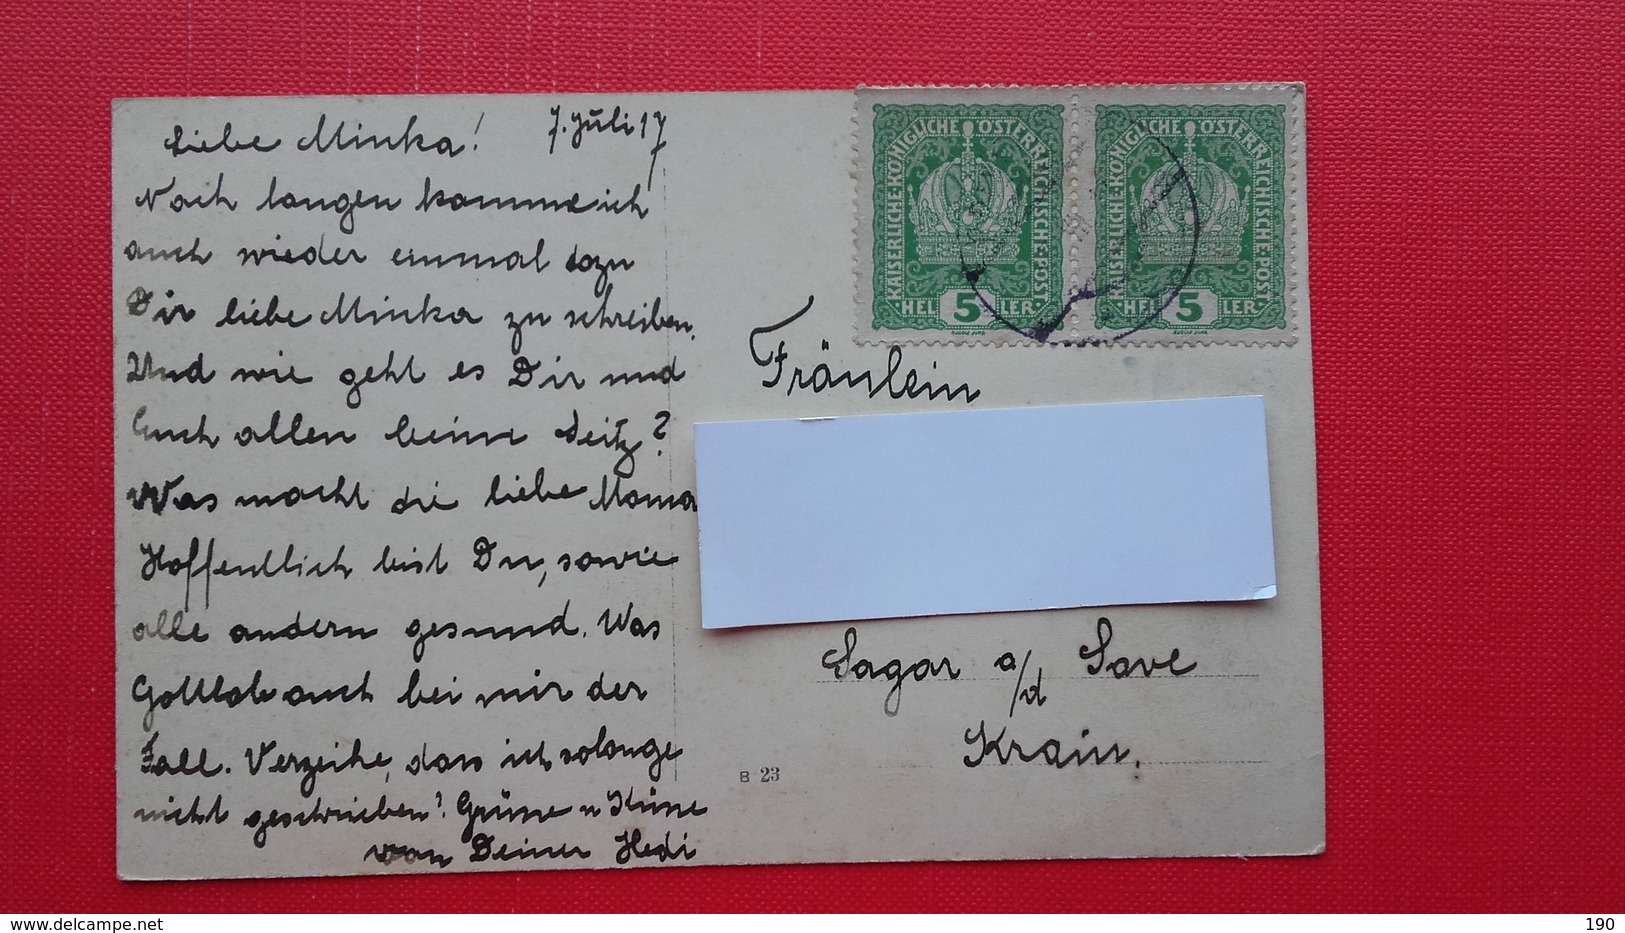 Liebe Minka! 7. Juli 17
Nach langen komme ich
auch wieder einmal dazu
Dir liebe Minka zu schreiben.
Und wie geht es Dir und
Euch allen keine Zeitz?
Was macht die liebe Mama
Hoffendlich bist Du, sowie
alle andern gesund. Was
Gottlob auch bei mir der
Fall. Verzeihe, dass ich solange
nicht geschrieben? Grüsse u Küsse
von Deiner Hedi
KAISERLICHE·KÖNIGLICHE ÖSTERREICHISCHE·POST
HEL 5 LER
KAISERLICHE·KÖNIGLICHE ÖSTERREICHISCHE·POST
HEL 5 LER
Fräulein
Sagar a/d Save
Krain.
B 23
delcampe.net
190